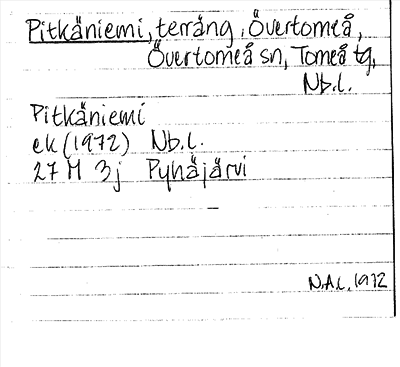 Pitkäniemi, terräng, Övertorneå,
Övertorneå sn, Torneå tg,
Nb.l.
Pitkäniemi
ek (1972) Nb.l.
27 M 3j Pyhäjärvi
N.A.L. 1972